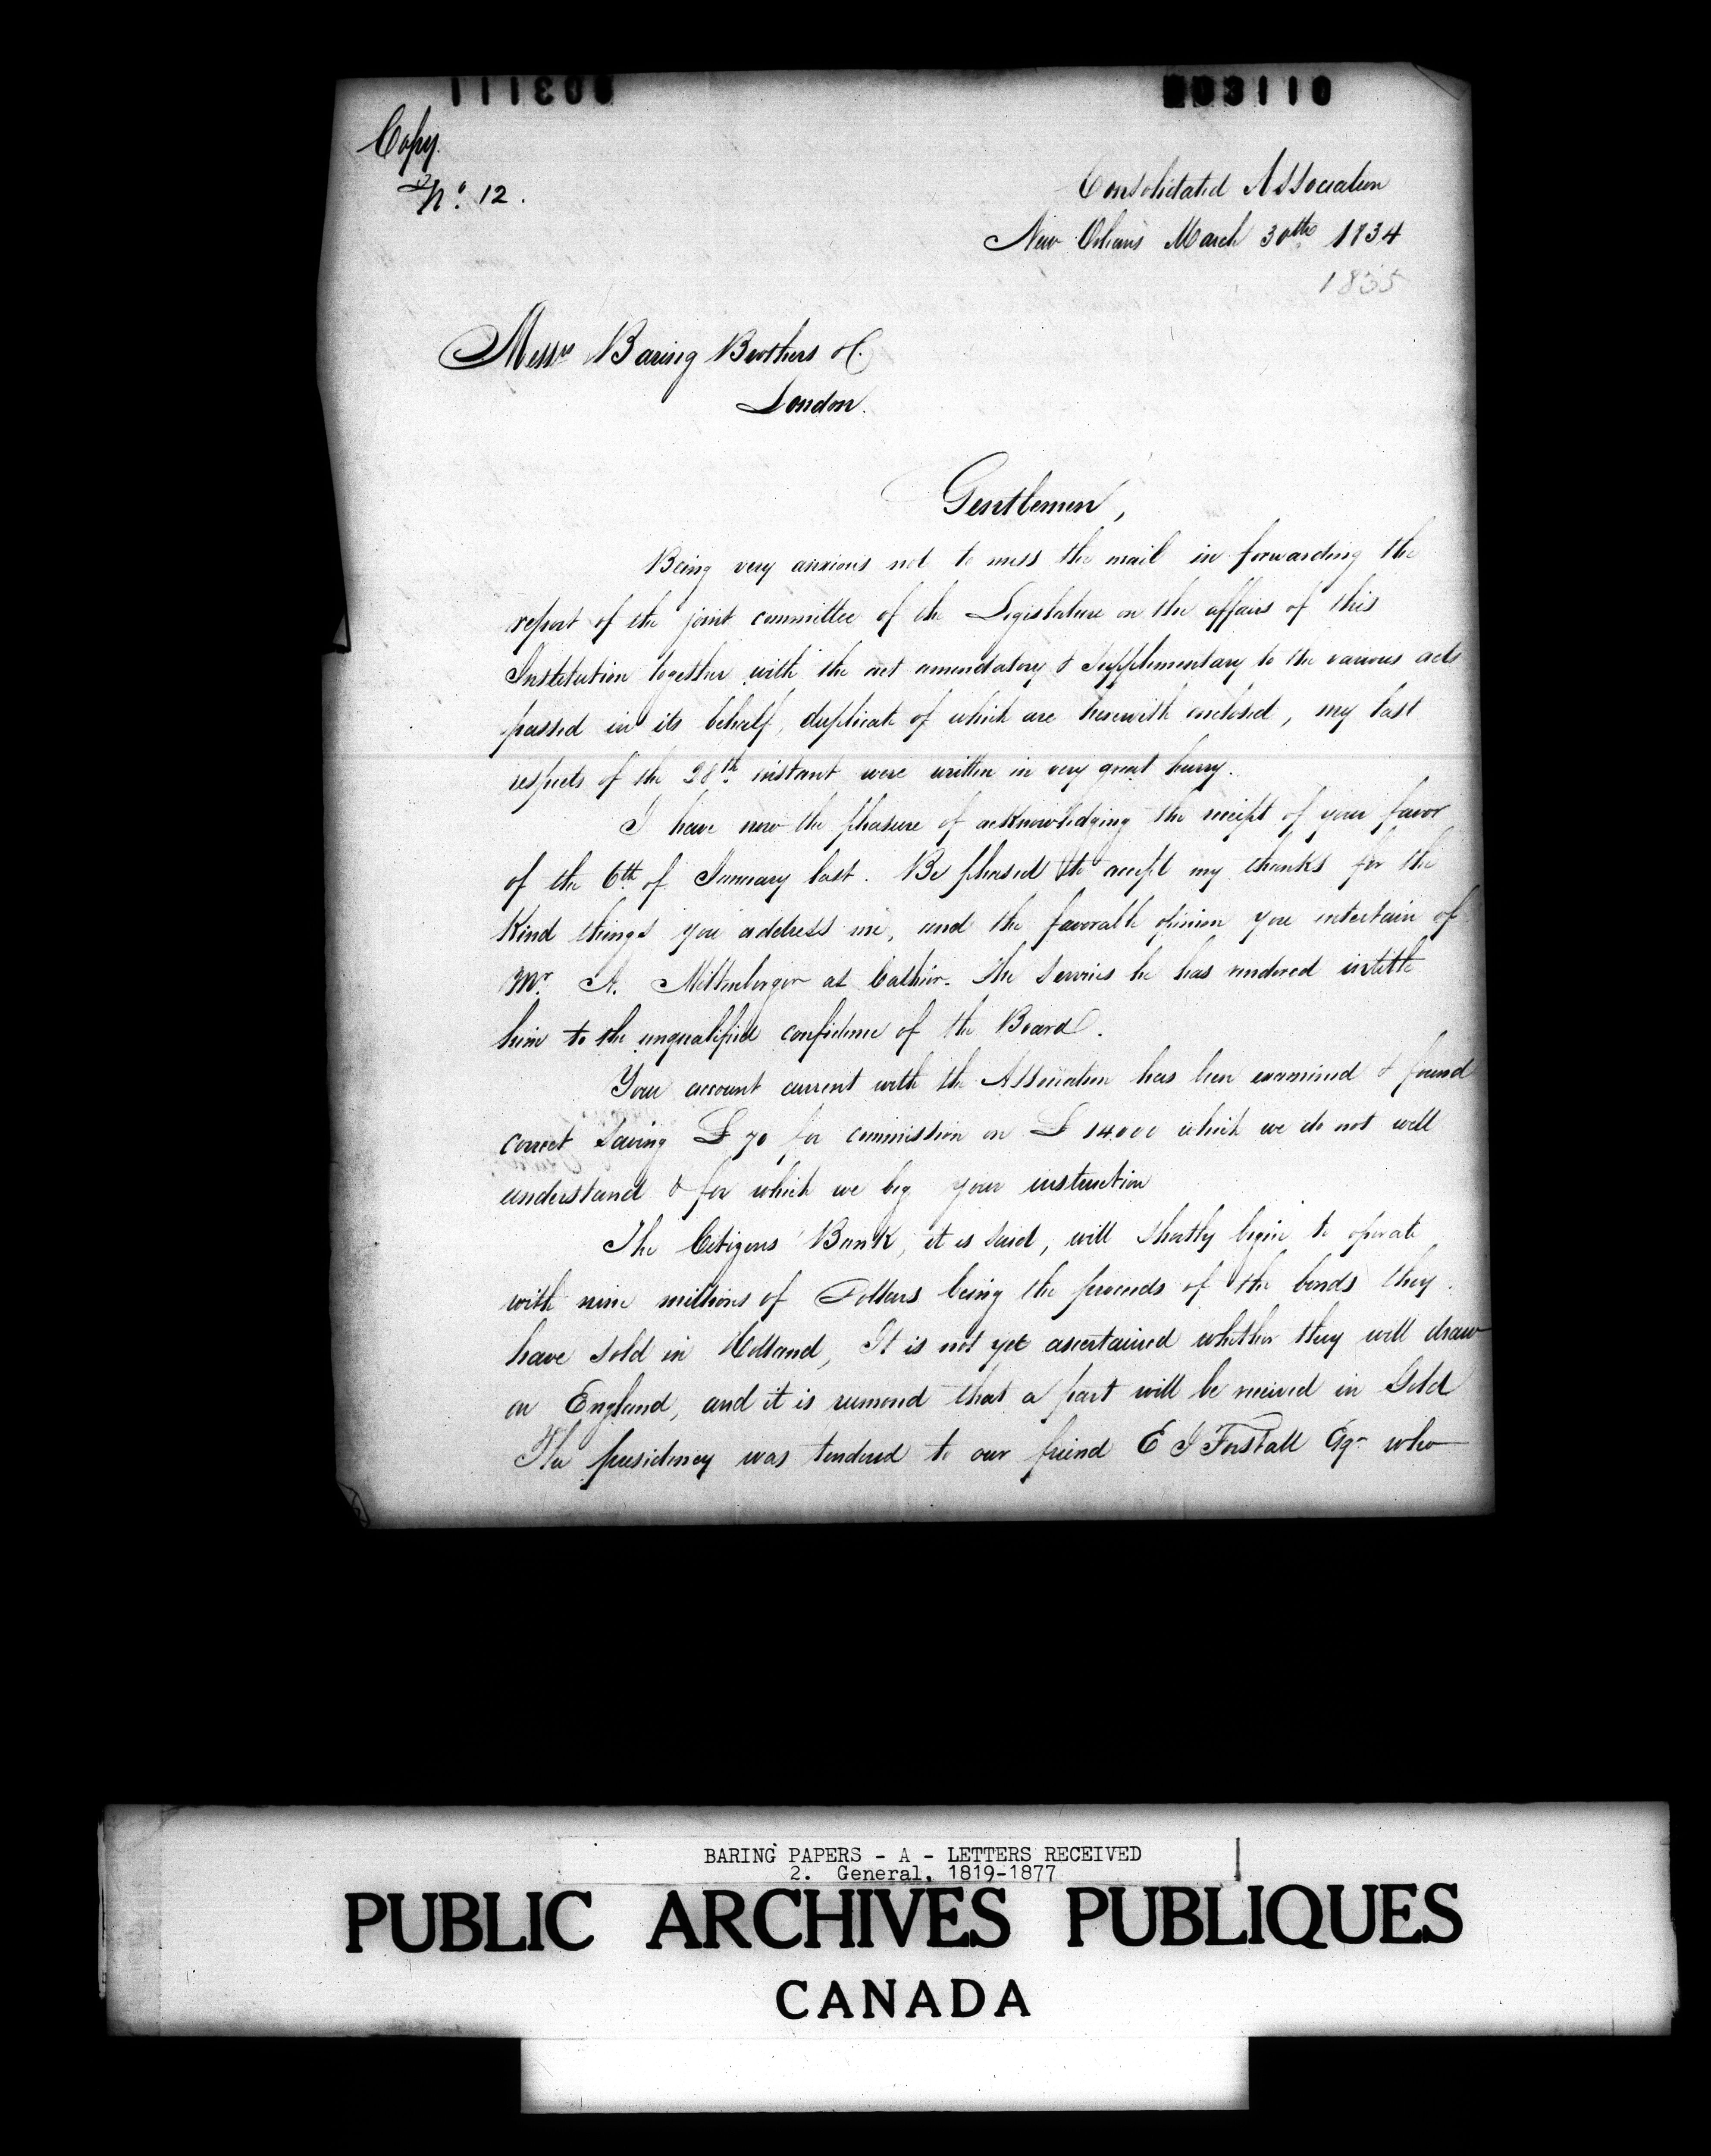 003111
003110
Copy
No. 12.
Consolidated Association
New Orleans March 30th 1834
1835
Messrs Baring Brothers & C.
London.
Gentlemen,
Being very anxious not to miss the mail in forwarding the
report of the joint committee of the Legislature on the affairs of this
Institution together with the act amendatory & Supplimentary to the various acts
passed in its behalf, duplicate of which are herewith enclosed, my last
respects of the 28th instant were written in very great hurry.
I have now the pleasure of acknowledging the receipt of your favor
of the 6th of January last. Be pleased to accept my thanks for the
Kind things you address me, and the favorable opinion you entertain of
Mr. A. Miltenberger as Cashier. The services he has rendered intitle
him to the unqualified confidence of the Board.
Your account current with the Association has been examined & found
correct saving £ 70 for commission on £ 14000 which we do not well
understand & for which we beg your instruction
The Citizens' Bank, it is said, will shortly begin to operate
with nine millions of Dollars being the proceeds of the bonds they
have sold in Holland, It is not yet ascertained whether they will draw
on England, and it is rumored that a part will be received in Gold
The presidency was tendered to our friend E J Forstall Esqr who
BARING PAPERS - A - LETTERS RECEIVED
2. General, 1819-1877
PUBLIC ARCHIVES PUBLIQUES
CANADA